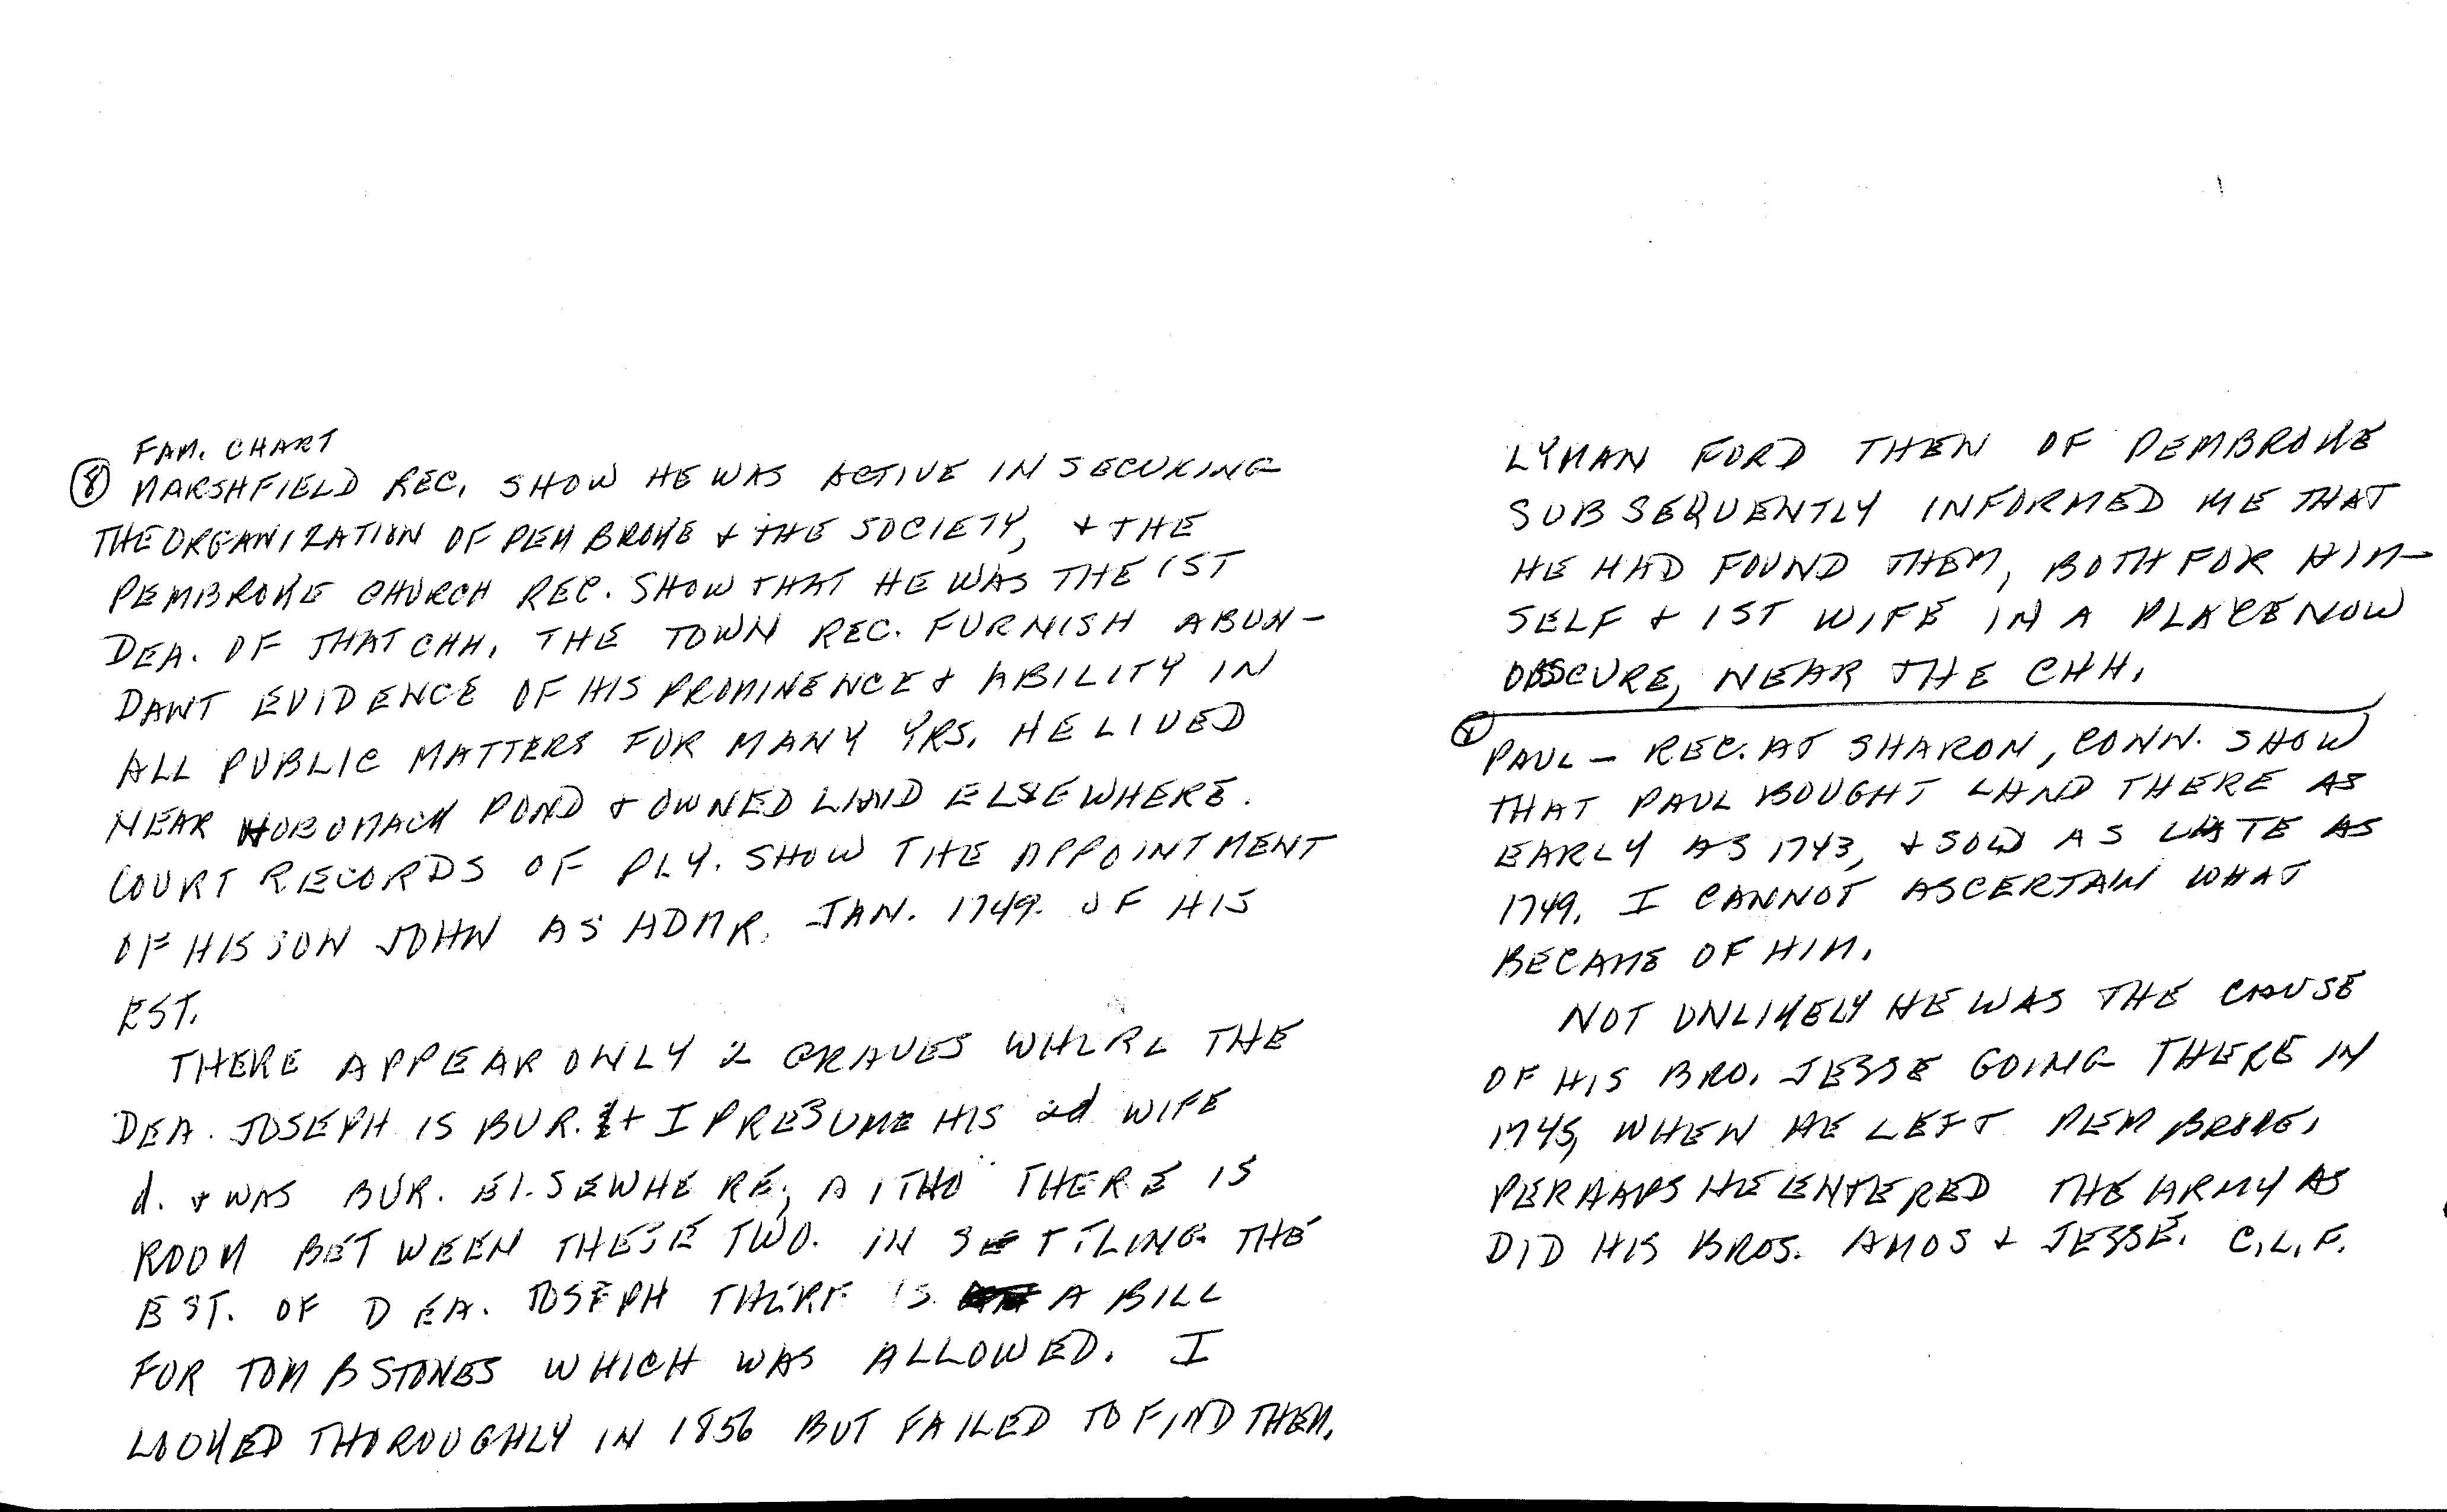 FAM. CHART
⑧ MARSHFIELD REC. SHOW HE WAS ACTIVE IN SECURING
THE ORGANIZATION OF PEMBROKE & THE SOCIETY, & THE
PEMBROKE CHURCH REC. SHOW THAT HE WAS THE 1ST
DEA. OF THAT CHH. THE TOWN REC. FURNISH ABUN-
DANT EVIDENCE OF HIS PROMINENCE & ABILITY IN
ALL PUBLIC MATTERS FOR MANY YRS. HE LIVED
NEAR HOBOMACK POND & OWNED LAND ELSEWHERE.
COURT RECORDS OF PLY. SHOW THE APPOINTMENT
OF HIS SON JOHN AS ADMR. JAN. 1749. OF HIS
EST.
THERE APPEAR ONLY 2 GRAVES WHERE THE
DEA. JOSEPH IS BUR. & I PRESUME HIS 2d WIFE
d. & WAS BUR. ELSEWHERE, ALTHO THERE IS
ROOM BETWEEN THESE TWO. IN SETTLING THE
EST. OF DEA. JOSEPH THERE IS A BILL
FOR TOMBSTONES WHICH WAS ALLOWED. I
LOOKED THOROUGHLY IN 1856 BUT FAILED TO FIND THEM.
LYMAN FORD THEN OF PEMBROKE
SUBSEQUENTLY INFORMED ME THAT
HE HAD FOUND THEM, BOTH FOR HIM-
SELF & 1ST WIFE IN A PLACE NOW
OBSCURE, NEAR THE CHH.
PAUL - REC. AT SHARON, CONN. SHOW
THAT PAUL BOUGHT LAND THERE AS
EARLY AS 1743, & SOLD AS LATE AS
1749. I CANNOT ASCERTAIN WHAT
BECAME OF HIM.
NOT UNLIKELY HE WAS THE CAUSE
OF HIS BRO. JESSE GOING THERE IN
1745, WHEN HE LEFT PEMBROKE.
PERHAPS HE ENTERED THE ARMY AS
DID HIS BROS. AMOS & JESSE. C.L.F.